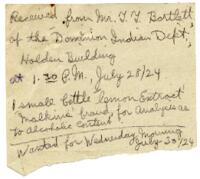 Received from Mr. T. F. Bartlett
of the Dominion Indian Dept,
Holden Building
at 1.30 P.M., July 28/24
1 small bottle Lemon Extract
"Malkins" brand, for Analysis as
to Alcoholic Content.
Wanted for Wednesday Morning
July 30/24